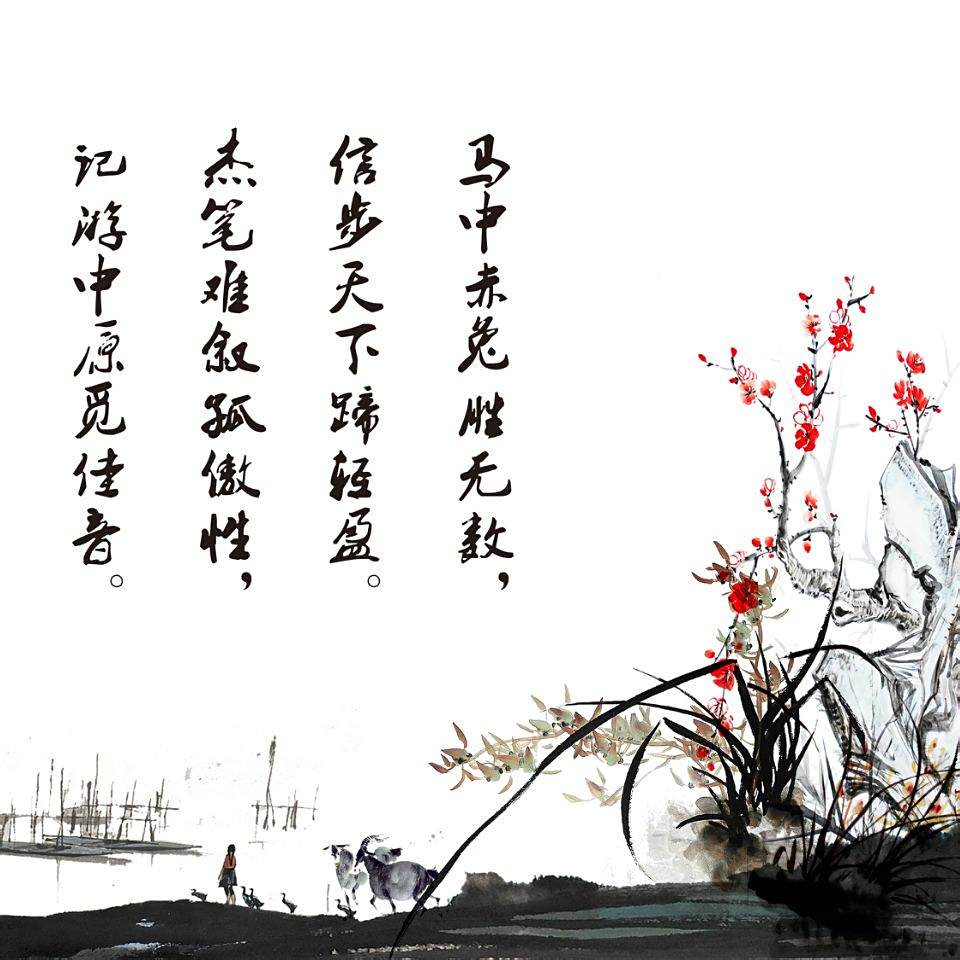 马中赤兔胜无数，
信步天下蹄轻盈。
杰笔难叙孤傲性，
记游中原觅佳音。